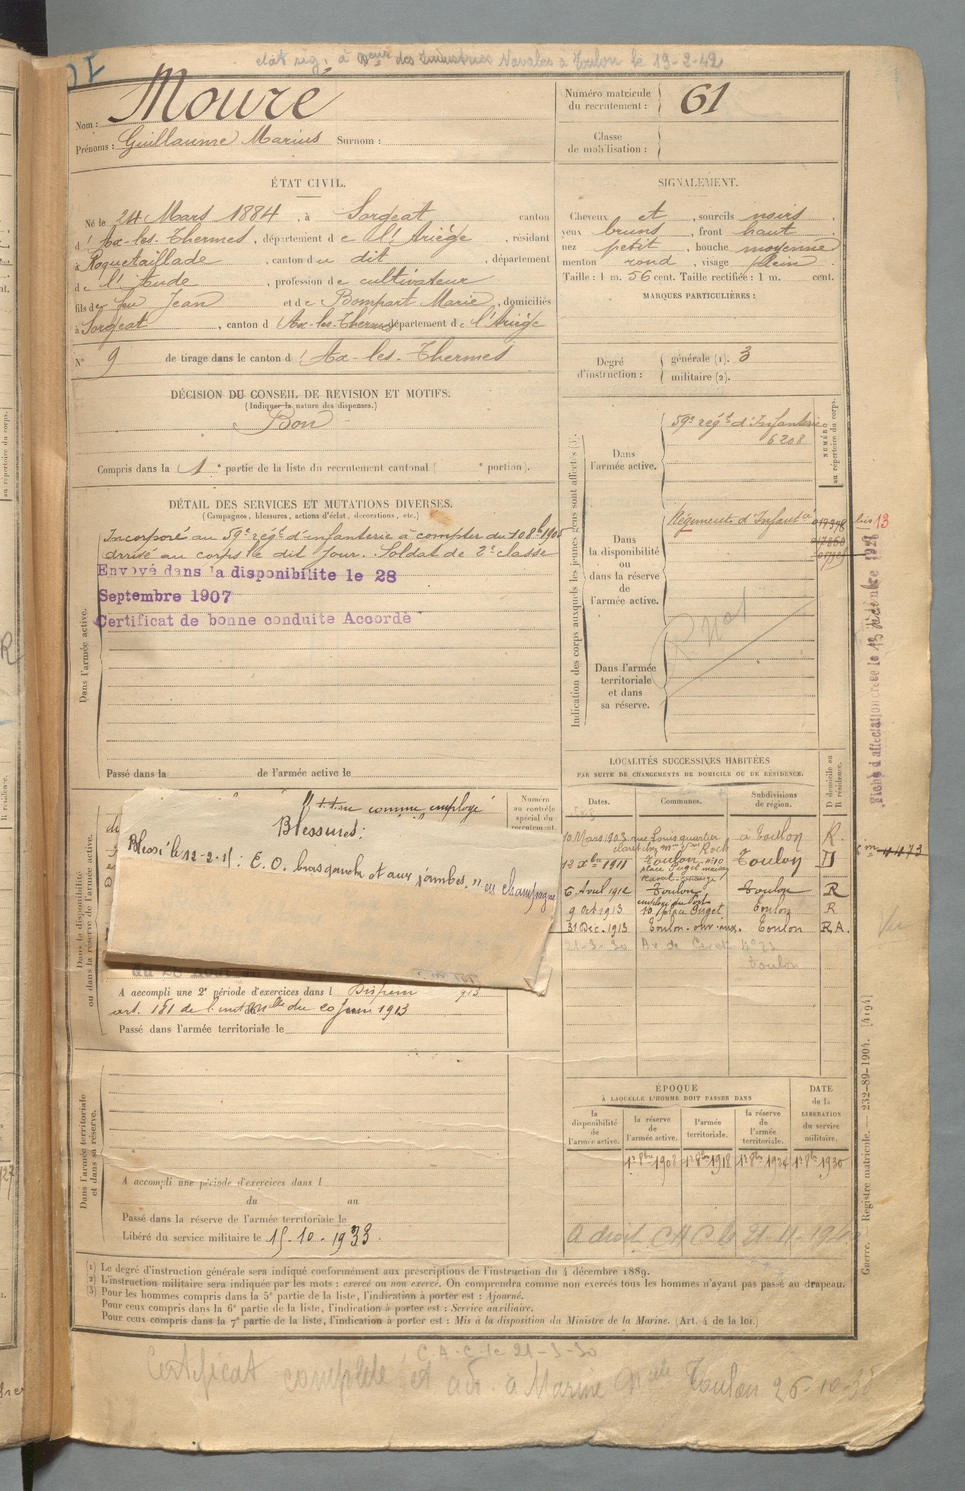 état sig. à Dion des Industries Navales à Toulon le 19-2-42
Nom : Moure
Prénoms : Guillaume Marius Surnom :
Numéro matricule du recrutement : 61
Classe de mobilisation :
ÉTAT CIVIL.
Né le 24 Mars 1884, à Sorgeat canton
d'Ax-les-Thermes, département de l'Ariège, résidant
à Roquetaillade, canton du dit, département
de l'Aude, profession de cultivateur
fils de feu Jean et de Bompart Marie, domiciliés
à Sorgeat, canton d'Ax-les-Thermes département de l'Ariège
N° 9 de tirage dans le canton d'Ax-les-Thermes
SIGNALEMENT.
Cheveux et, sourcils noirs,
yeux bruns, front haut,
nez petit, bouche moyenne
menton rond, visage plein.
Taille : 1 m. 56 cent. Taille rectifiée : 1 m. cent.
MARQUES PARTICULIÈRES :
Degré d'instruction : générale (1). 3
militaire (2).
DÉCISION DU CONSEIL DE REVISION ET MOTIFS.
(Indiquer la nature des dispenses.)
Bon
Compris dans la 1e partie de la liste du recrutement cantonal ( e portion).
DÉTAIL DES SERVICES ET MUTATIONS DIVERSES.
(Campagnes, blessures, actions d'éclat, décorations, etc.)
Dans l'armée active.
Incorporé au 59e régt d'infanterie à compter du 8bre 1905
arrivé au corps le dit jour. Soldat de 2e classe
Envoyé dans la disponibilite le 28
Septembre 1907
Certificat de bonne conduite Accordé
Passé dans la de l'armée active le
Indication des corps auxquels les jeunes gens sont affectés (3).
NUMÉRO au répertoire du corps.
Dans l'armée active.
59e régt d'Infanterie
6208
Dans la disponibilité ou dans la réserve de l'armée active.
Régiment d'Infantie
bis 13
Dans l'armée territoriale et dans sa réserve.
Fiche d'affectation créée le 13 décembre 1928
LOCALITÉS SUCCESSIVES HABITÉES
PAR SUITE DE CHANGEMENTS DE DOMICILE OU DE RÉSIDENCE.
Dates. Communes. Subdivisions de région. D domicile ou R résidence.
10 Mars 1903 rue Louis quartier à Toulon R.
12 Xbre 1911 Toulon Toulon D
6 Avril 1912 Toulon Toulon R
9 Oct 1913 10, place Puget Toulon R
31 Dec. 1913 Toulon Toulon R.A.
21-3-30
Toulon
Dans la disponibilité ou dans la réserve de l'armée active.
Numéro au contrôle spécial du recrutement.
comme employé
Blessures :
Blessé le 12-2-15 : E. O. bras gauche et aux jambes, en champagne
A accompli une 2e période d'exercices dans l Dispensé
art. 181 de l'inst du 20 Juin 1913
Passé dans l'armée territoriale le
Dans l'armée territoriale et dans sa réserve.
A accompli une période d'exercices dans l
du au
Passé dans la réserve de l'armée territoriale le
Libéré du service militaire le 15-10-1933.
ÉPOQUE
À LAQUELLE L'HOMME DOIT PASSER DANS
la disponibilité de l'armée active. la réserve de l'armée active. l'armée territoriale. la réserve de l'armée territoriale. DATE de la LIBÉRATION du service militaire.
1er 8bre 1908 1er 8bre 1918 1er 8bre 1924 1er 8bre 1930
A droit C A C
Guerre. — Registre matricule. — 232-89-1904. [4194]
(1) Le degré d'instruction générale sera indiqué conformément aux prescriptions de l'instruction du 4 décembre 1889.
(2) L'instruction militaire sera indiquée par les mots : exercé ou non exercé. On comprendra comme non exercés tous les hommes n'ayant pas passé au drapeau.
(3) Pour les hommes compris dans la 5e partie de la liste, l'indication à porter est : Ajourné.
Pour ceux compris dans la 6e partie de la liste, l'indication à porter est : Service auxiliaire.
Pour ceux compris dans la 7e partie de la liste, l'indication à porter est : Mis à la disposition du Ministre de la Marine. (Art. 4 de la loi.)
C.A.C. le 21-3-30
Certificat complété et adr. à Marine Toulon 26-10-38